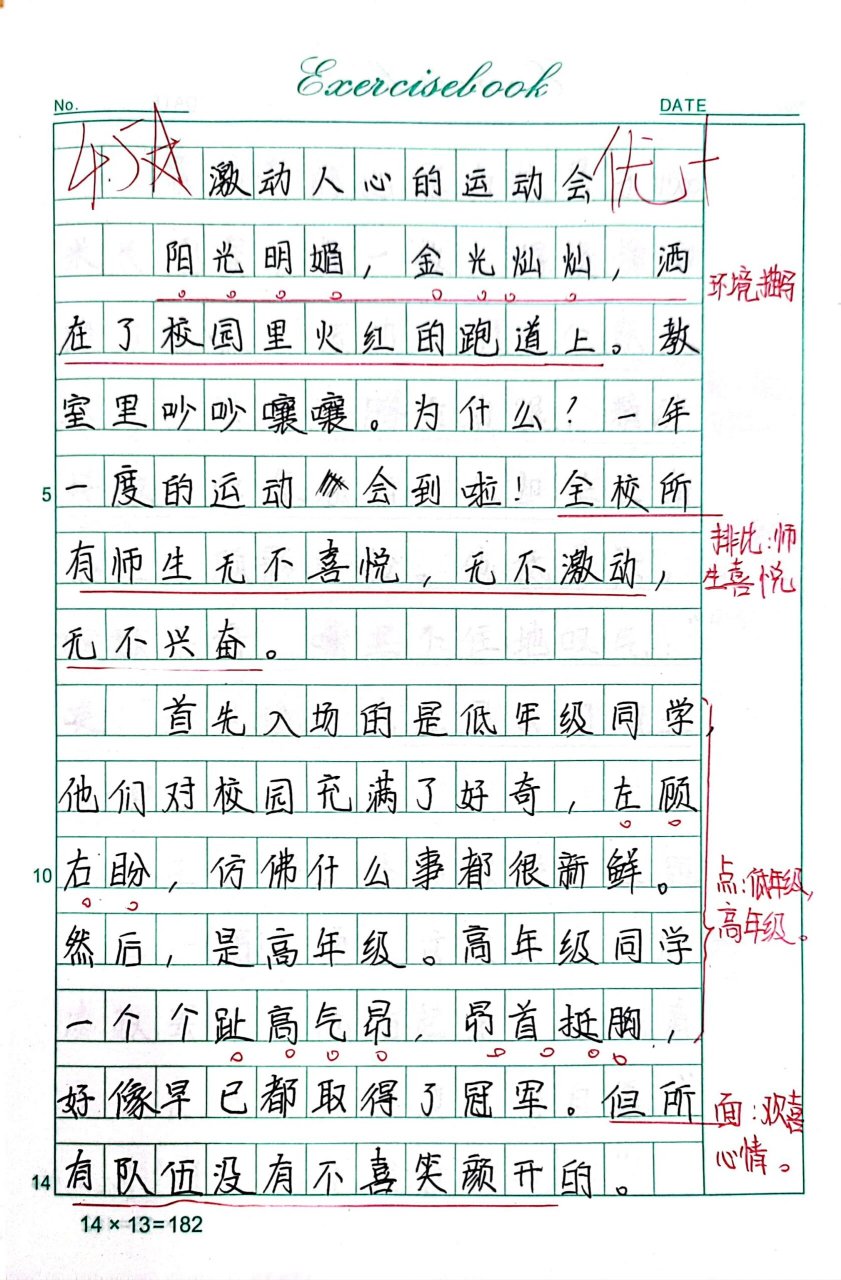 Exercisebook
No.
DATE
4.5☆
优+
激动人心的运动会
阳光明媚，金光灿灿，洒
环境描写
在了校园里火红的跑道上。教
室里吵吵嚷嚷。为什么？一年
5
一度的运动会到啦！全校所
有师生无不喜悦，无不激动，
排比：师
生喜悦
无不兴奋。
首先入场的是低年级同学，
他们对校园充满了好奇，左顾
10
右盼，仿佛什么事都很新鲜。
点：低年级，
高年级。
然后，是高年级。高年级同学
一个个趾高气昂，昂首挺胸，
好像早已都取得了冠军。但所
面：欢喜
心情。
14
有队伍没有不喜笑颜开的。
14×13=182